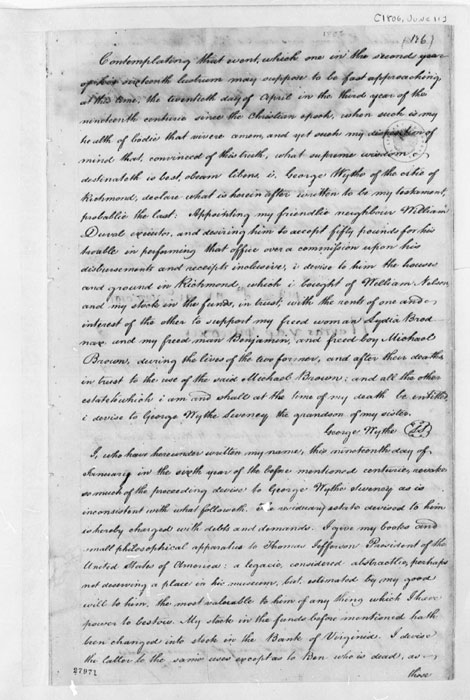 [1806, June 11]
(126)
Contemplating that event, which one in the second year
of his sixteenth lustrum may suppose to be fast approaching
at this time, the twentieth day of April in the third year of the
nineteenth centurie since the Christian epoch, when such is my
health of bodie that vivere amem, and yet such my disposition of
mind that, convinced of this truth, what supreme wisdom
destinateth is best, obeam libens, i, George Wythe of the citie of
Richmond, declare what is herein after written to be my testament,
probablie the last: Appointing my friendlie neighbour William
Duval executor, and desiring him to accept fifty pounds for his
trouble in performing that office over a commission upon his
disbursements and receipts inclusive, i devise to him the houses
and ground in Richmond, which i bought of William Nelson,
and my stock in the funds, in trust, with the rents of one and
interest of the other to support my freed woman Lydia Brod
nax and my freed man Benjamin, and freed boy Michael
Brown, during the lives of the two former, and after their deaths
in trust to the use of the said Michael Brown; and all the other
estate which i am and shall at the time of my death be entitled,
i devise to George Wythe Sweney the grandson of my sister.
George Wythe
I, who have hereunder written my name, this nineteenth day of
January in the sixth year of the before mentioned centurie, revoke
so much of the preceeding devise to George Wythe Sweney as is
inconsistent with what followeth. The residuary estate devised to him
is hereby charged with debts and demands. I give my books and
small philosophical apparatus to Thomas Jefferson President of the
United States of America: a legacie, considered abstractlie, perhaps
not deserving a place in his museum, but, estimated by my good
will to him, the most valuable to him of any thing which I have
power to bestow. My stock in the funds before mentioned hath
been changed into stock in the Bank of Virginia. I devise
the latter to the same uses except as to Ben who is dead, as
those
27971